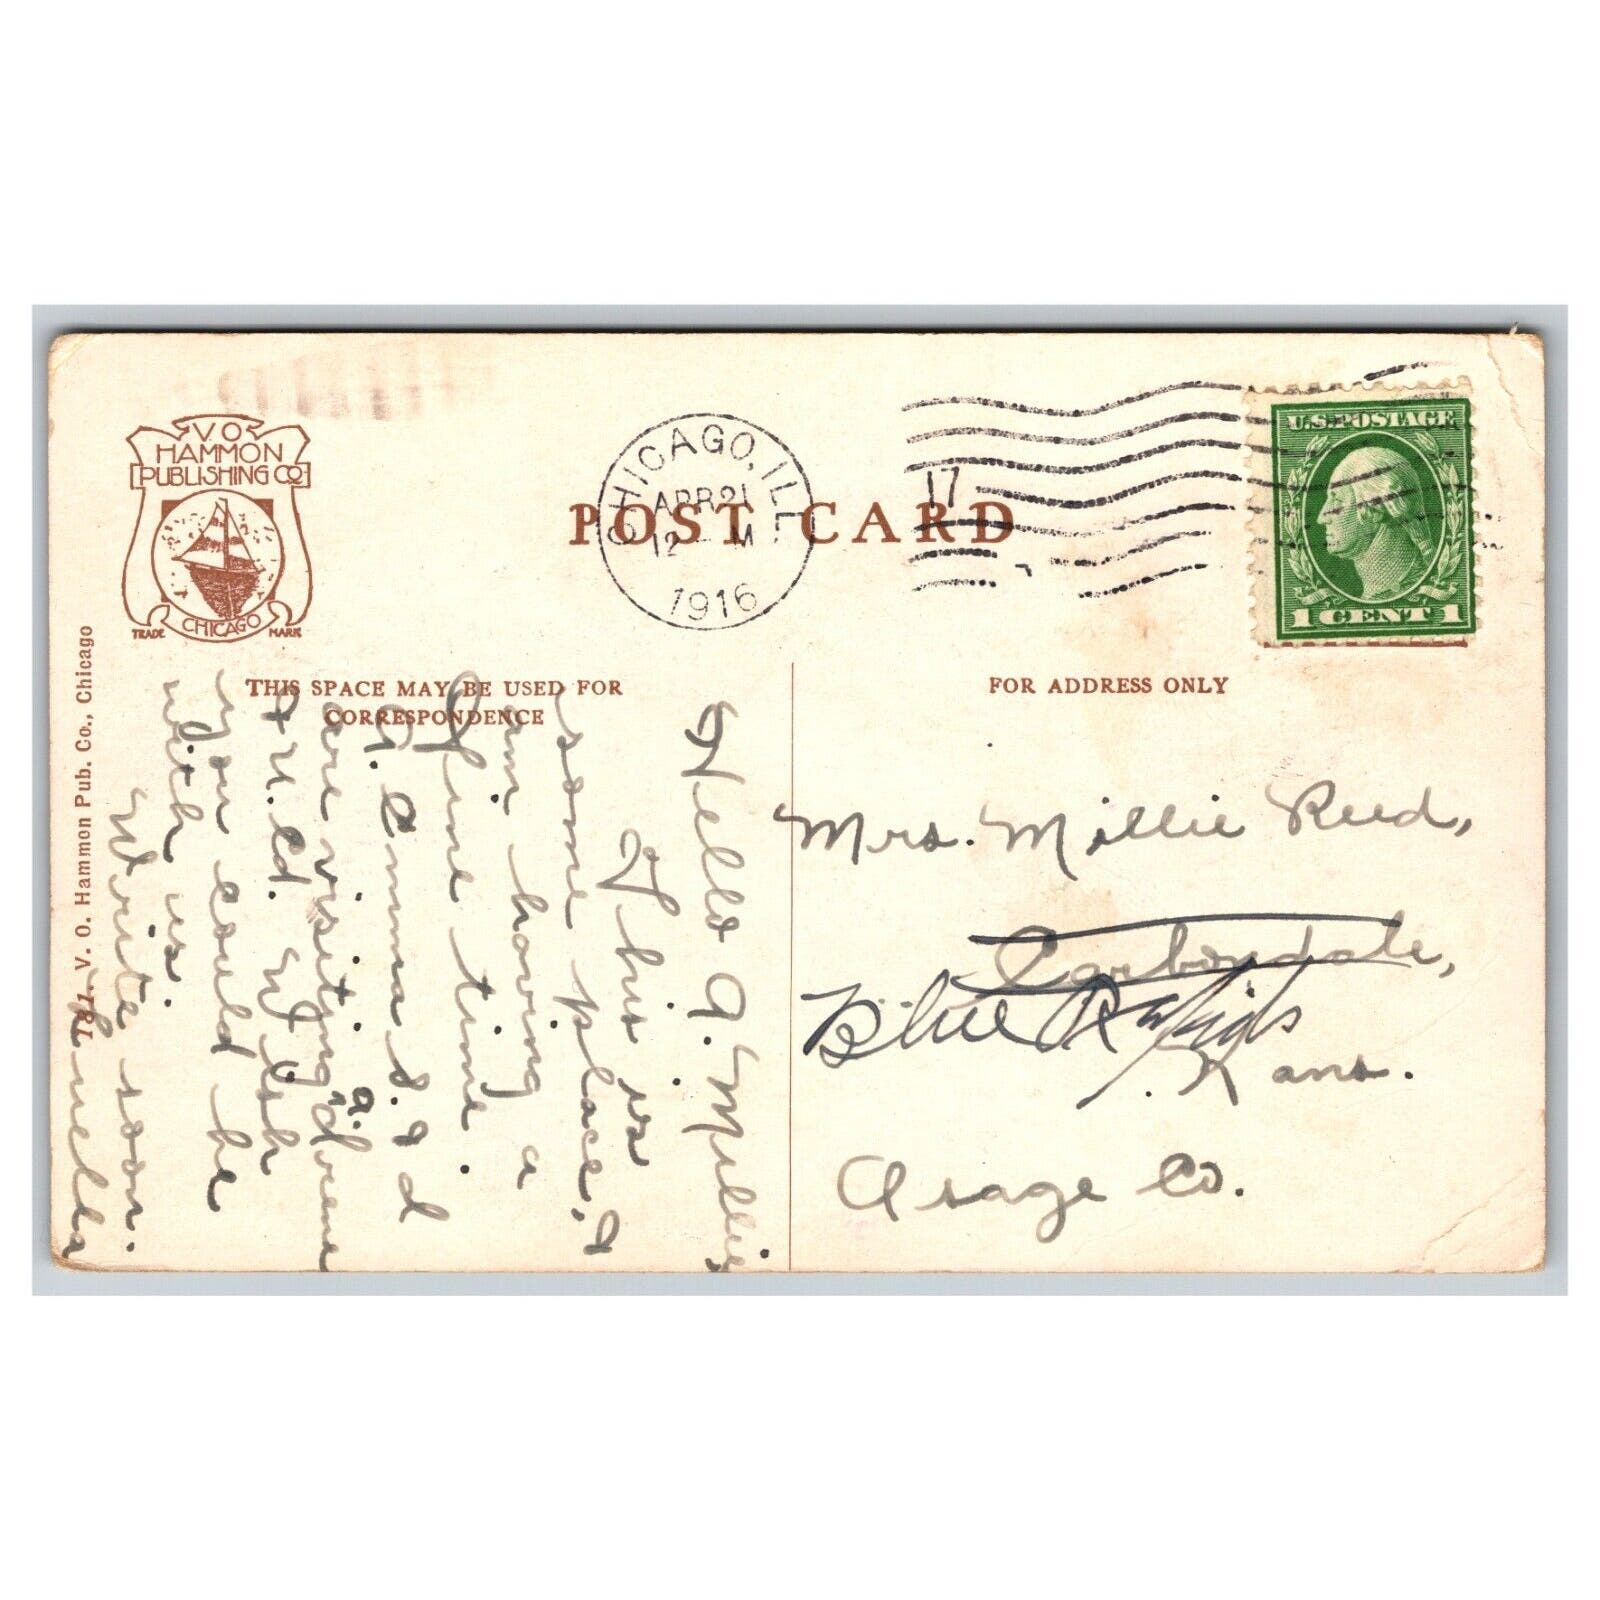 V.O.
HAMMON
PUBLISHING CO
CHICAGO
TRADE MARK
CHICAGO, ILL.
APR 21
12 M
1916
17
POST CARD
U.S. POSTAGE
1 CENT 1
THIS SPACE MAY BE USED FOR
CORRESPONDENCE
FOR ADDRESS ONLY
781 V. O. Hammon Pub. Co., Chicago
Hello A. Millie
This is
some place, &
am having a
fine time.
A. Emma S. & d
are visiting a.
& U. Ed. Wish
you could be
with us.
Write soon.
Mrs. Millie Reed,
Carbondale,
Blue Rapids
Kans.
Osage Co.